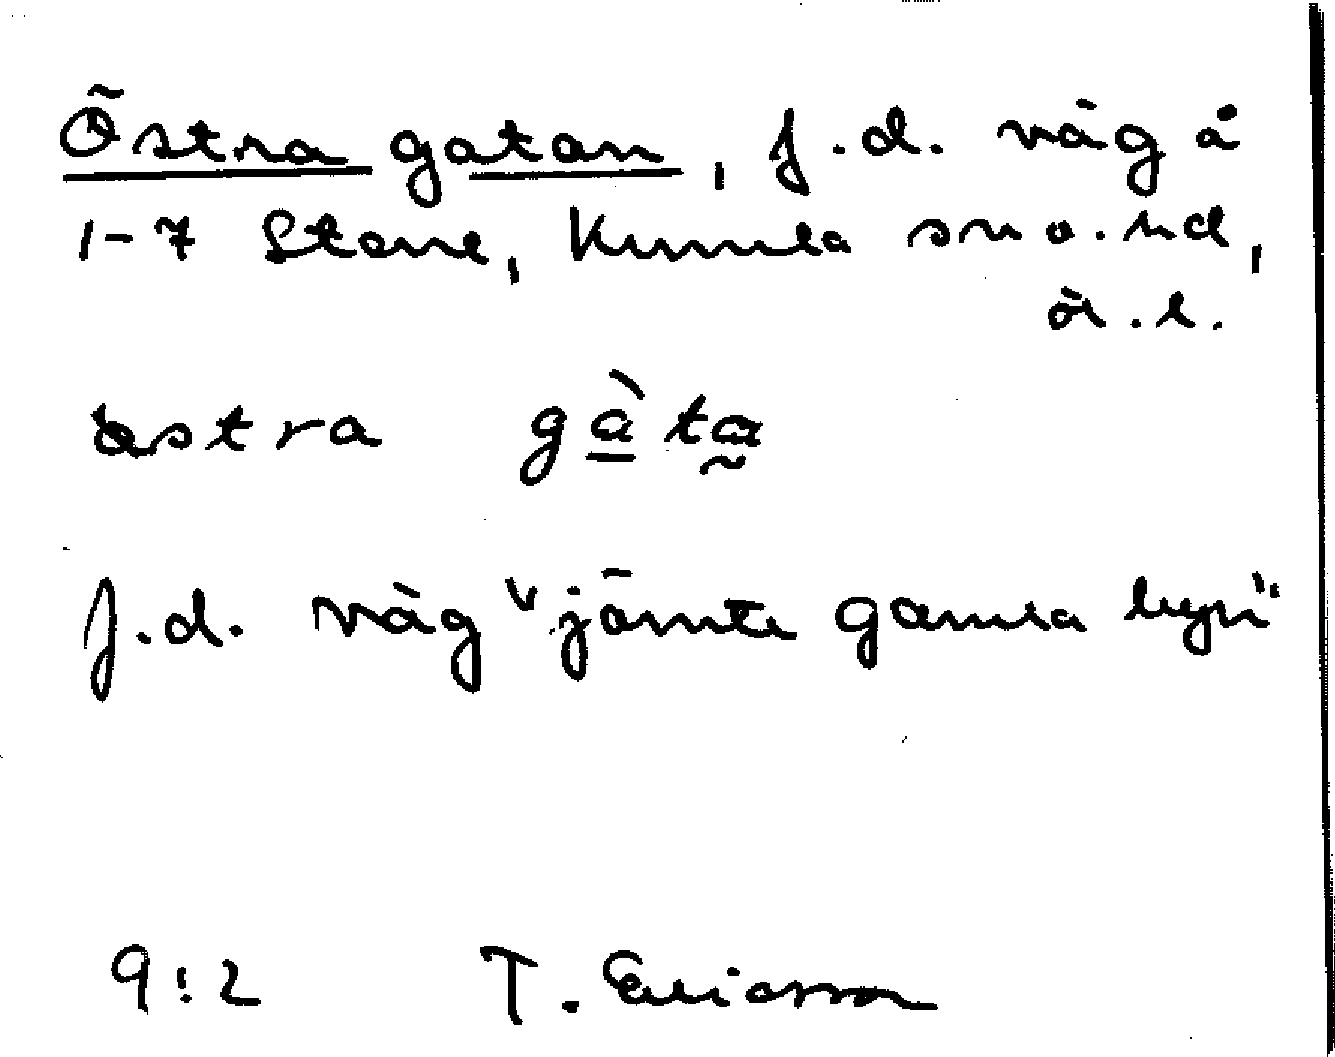 Östra gatan, f.d. väg å
1-7 Stene, Kumla sn o. hd,
ör. l.
östra gàta
f.d. väg "jämte gamla byn"
9:2 T. Ericsson